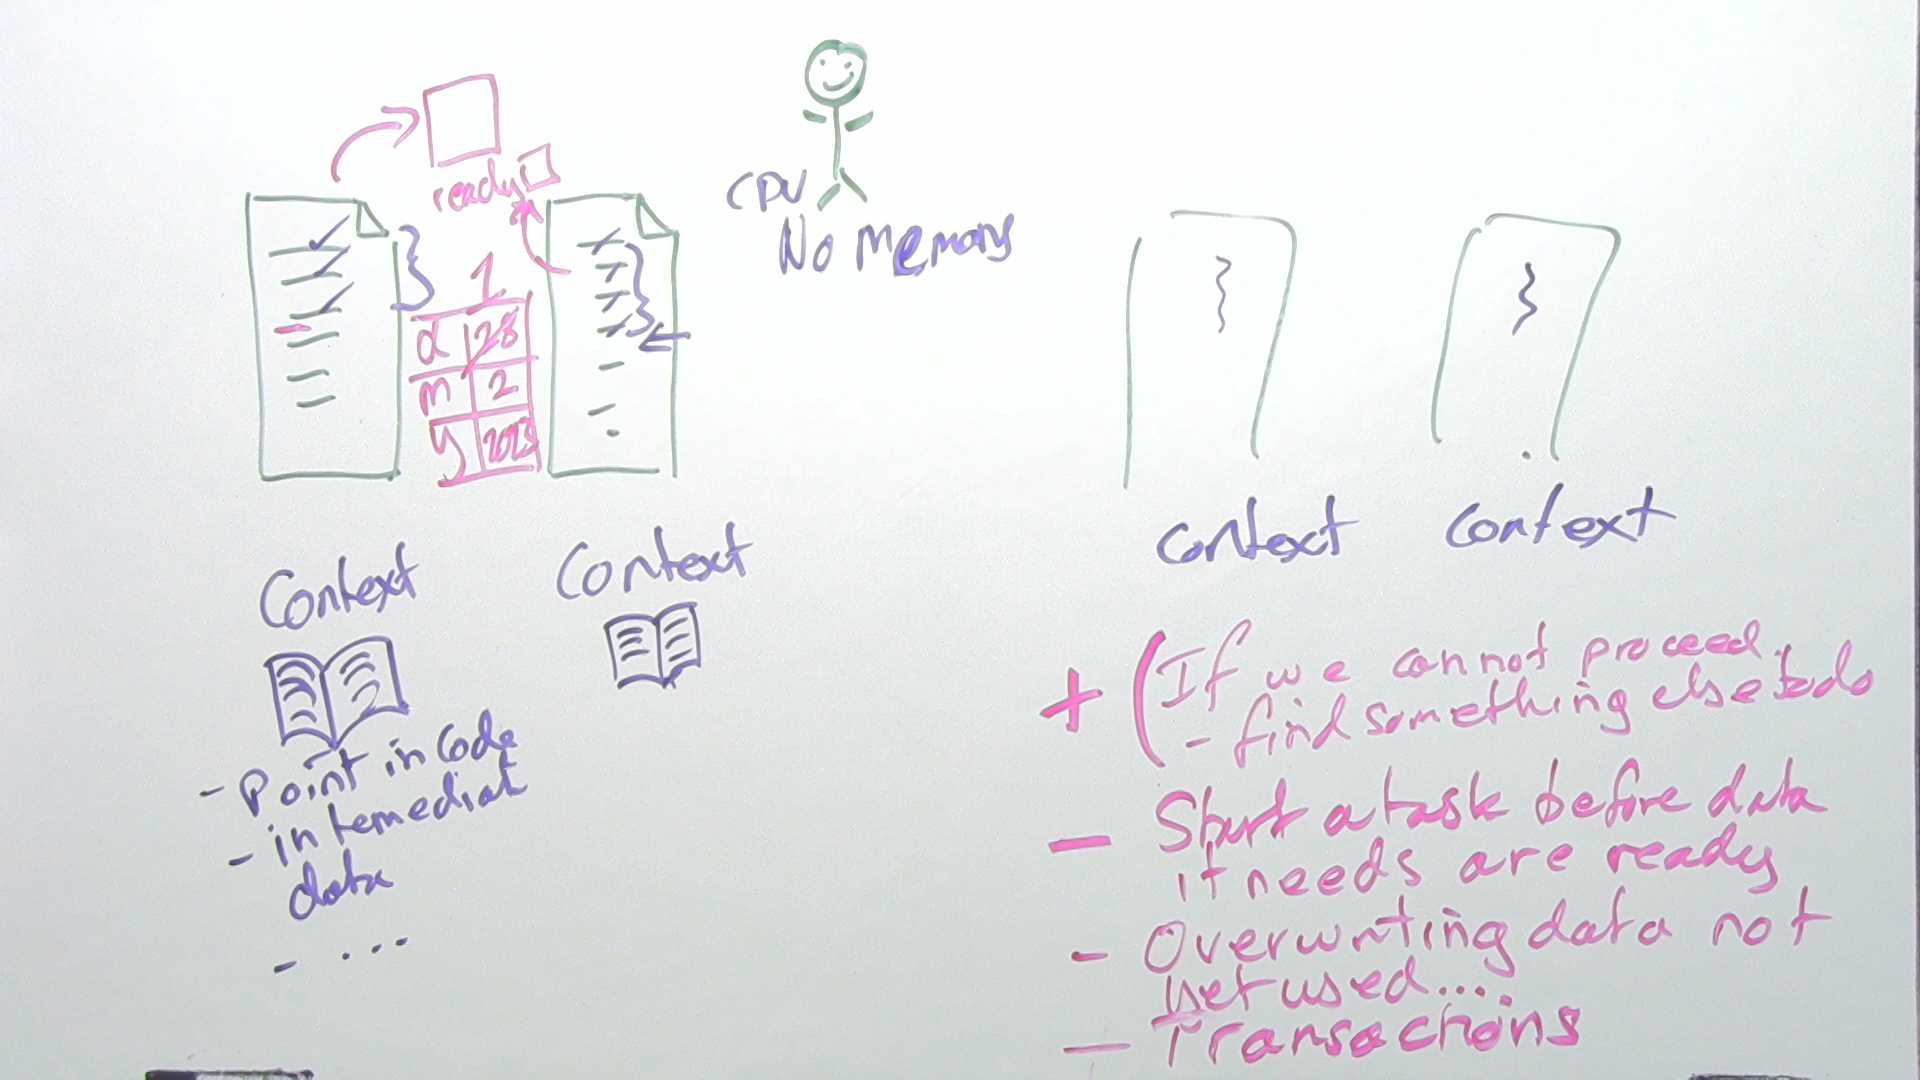 ready
CPU
No Memory
1
d 28
m 2
y 2023
Context
Context
- Point in code
- intemediat
data
- ...
context
context
+ (If we cannot proceed
- find something else todo
- Start a task before data
it needs are ready
- Overwriting data not
yet used....
- Transactions